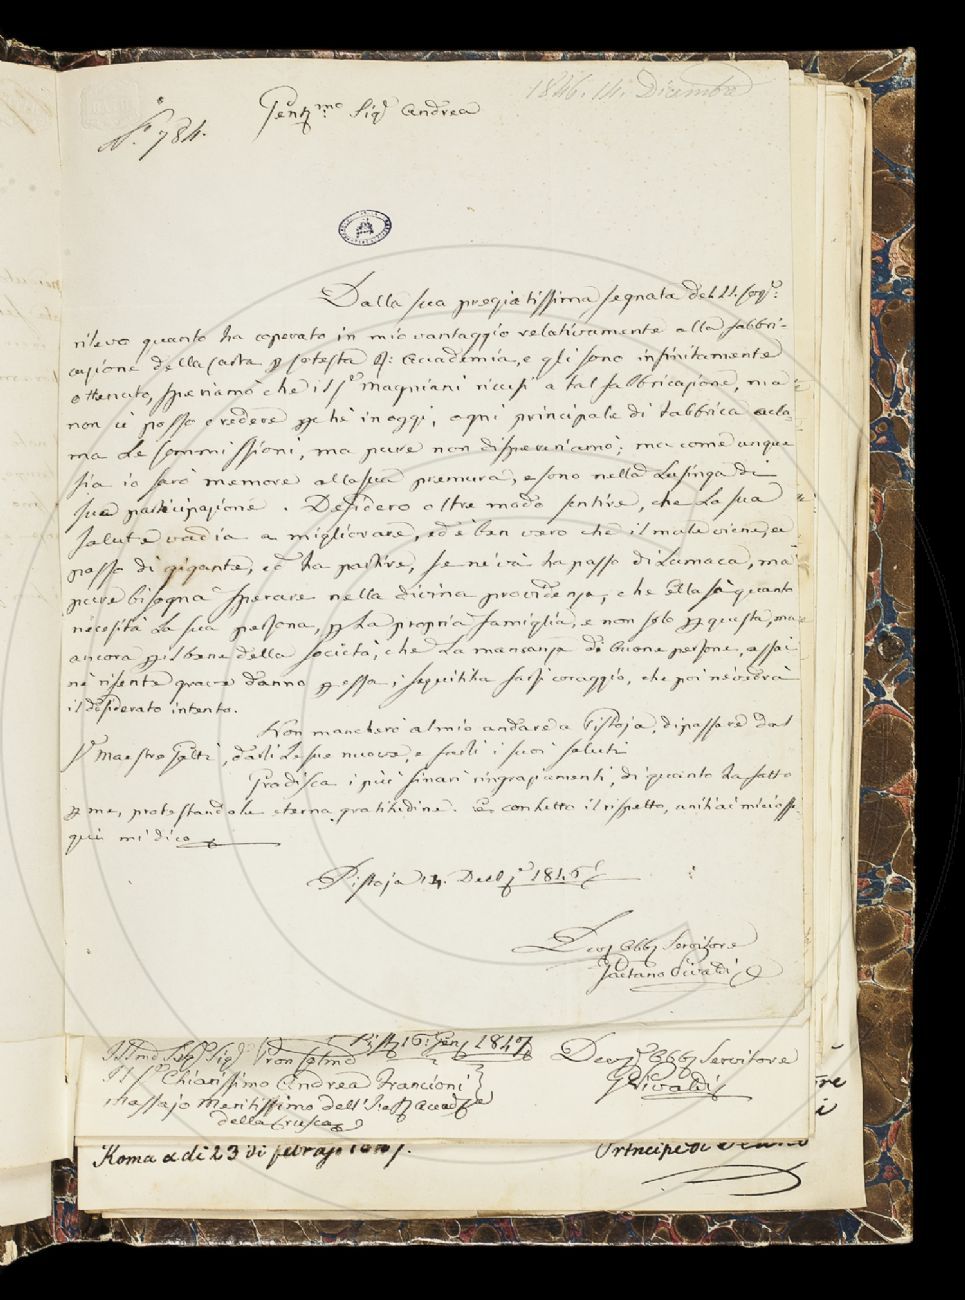 1846. 14. Dicembre
N.° 784.
Gent.mo Sig.r Andrea
Dalla sua pregiatissima segnata del 11. corr.e:
rilevo quanto ha operato in mio vantaggio relativamente alla fabbri-
cazione della carta p cotesta R: Accademia, e gli sono infinitamente
ottenuto, speriamo che il S.r Magniani ricusi a tal fabbricazione, ma
non ci posso credere pche in oggi, ogni principale di fabbrica acla-
ma le commissioni, ma pure non disperiamo; ma come unque
sia io sarò memore alla sua premura, e sono nella Lusinga di
sua participazione. Desidero oltre modo sentire, che la sua
salute vadia a migliorare, ed è ben vero che il male viene, a
passo di gigante, ed ha partire, se ne và ha passo di Lumaca, ma
pure bisogna sperare nella divina providenza, che ella sà quanto
necesità la sua persona, p la propria famiglia, e non solo p questa, ma
ancora p il bene della società, che la mancanza di buone persone, assai
ne risente grave danno p essa, seguiti ha farsi coraggio, che poi ne vedrà
il desiderato intento.
Non mancherò al mio andare a Pistoja, di passare dal
S.r Maestro Gatti, darli le sue nuove, e farli i suoi saluti
Gradisca i più sinari ringraziamenti, di quanto ha fatto
p me, protestandole eterna gratitudine. e con tutto il rispetto, uniti ai miei osse-
qui mi dico
Pistoja 14. Decb.e 1846
Dev. Obb. Servitore
Gaetano Vivaldi
16: Gen. 1847
Ill.mo Sig.r Sig.r Pron Col.mo
Il S.r Chiarissimo Andrea Francioni
Massajo Meritissimo dell' I. e R. Accad.a
della Crusca
Dev. Obb. Servitore
G Vivaldi
Roma a di 23 di
Principe di